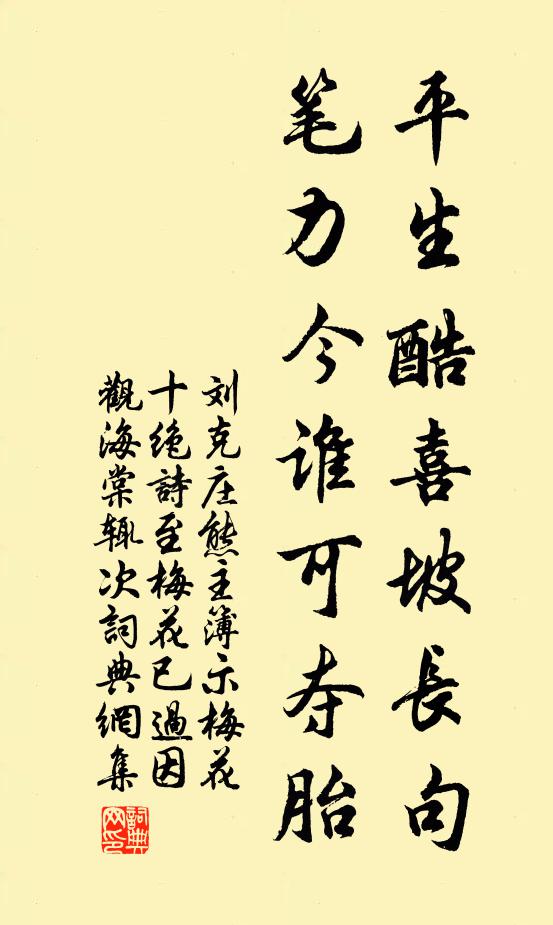 平生酷喜坡長句
笔力今谁可夺胎
刘克庄熊主簿示梅花
十绝詩至梅花已過因
觀海棠辄次詞典網集
詞典
网印